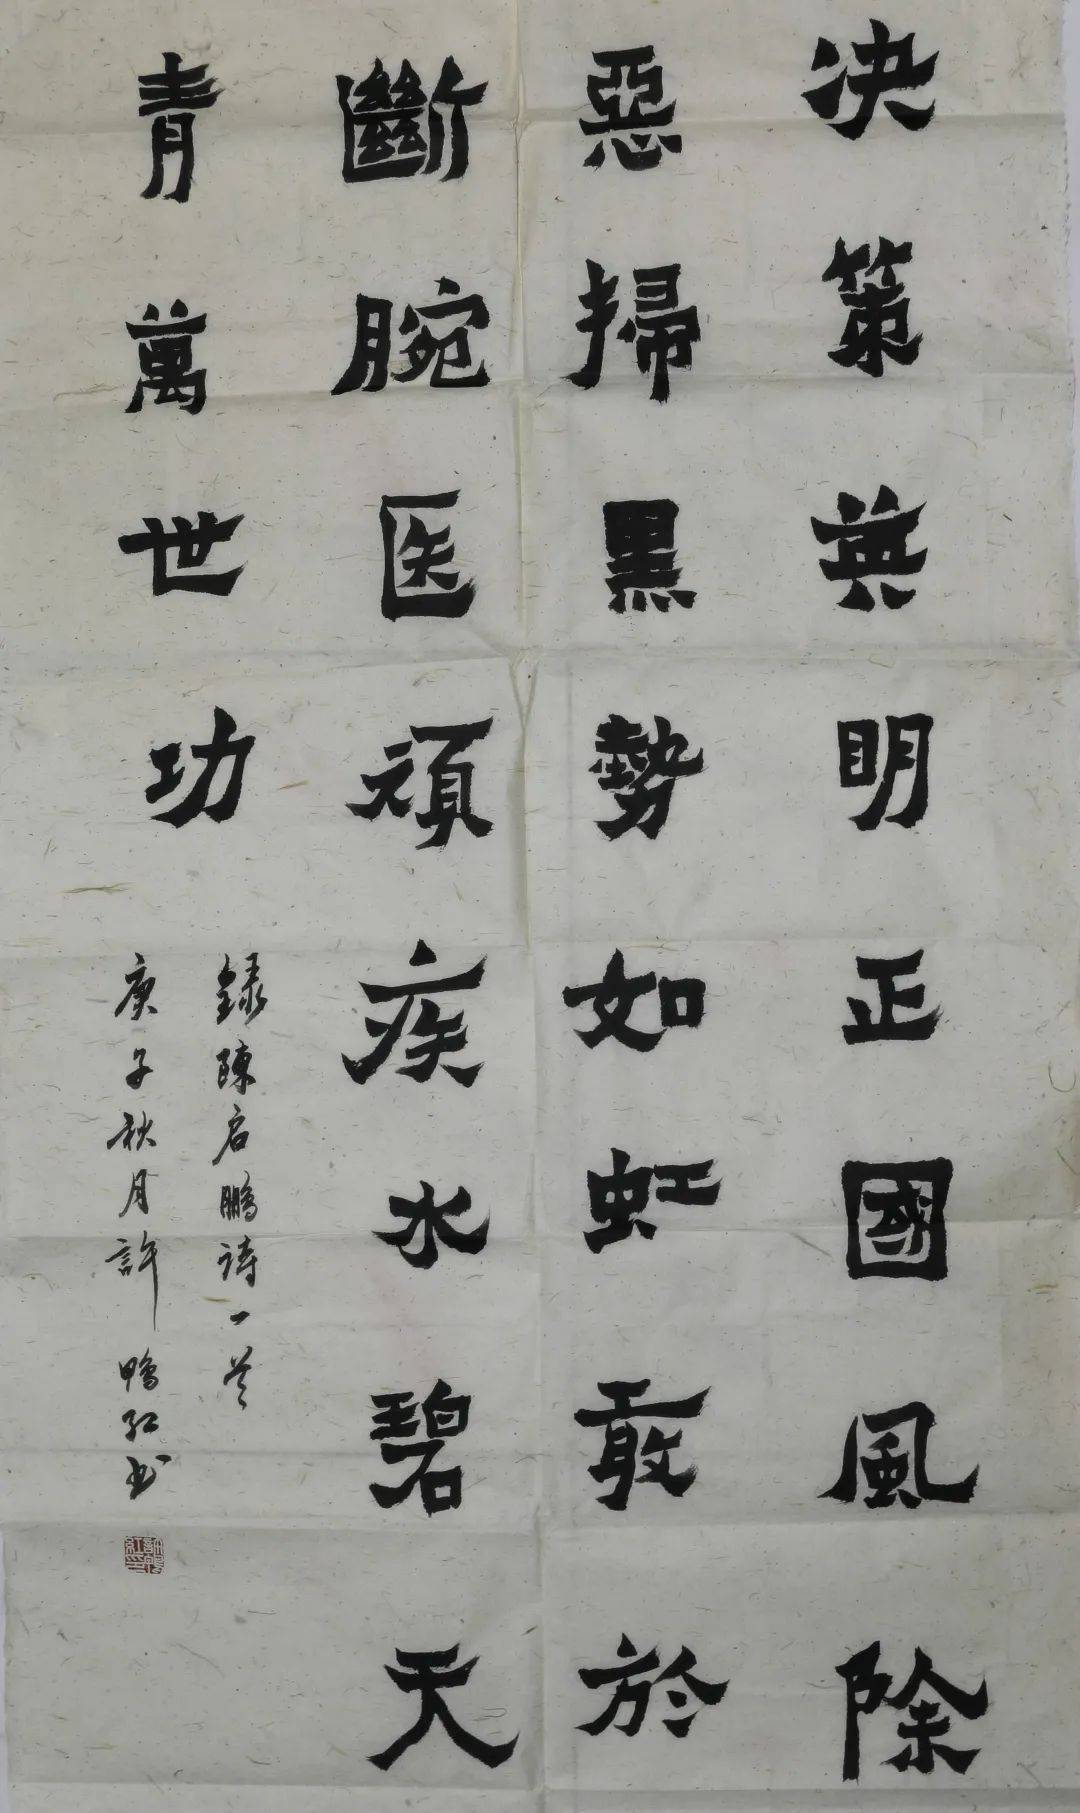 决策英明正國風除
惡掃黑勢如虹敢於
斷腕医頑疾水碧天
青萬世功
録陳启鵬诗一首
庚子秋月許鴨红书